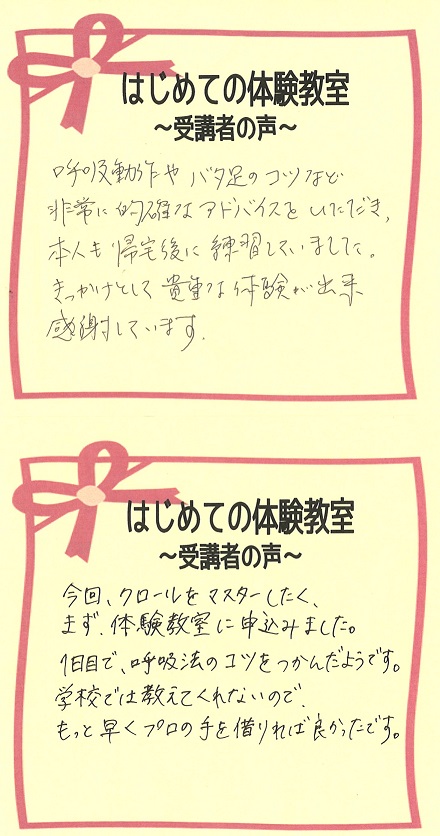 はじめての体験教室
～受講者の声～
呼吸動作や バタ足のコツなど
非常に的確なアドバイスをいただき、
本人も帰宅後に練習していました。
きっかけとして貴重な体験が出来
感謝しています。
はじめての体験教室
～受講者の声～
今回、クロールをマスターしたく、
まず、体験教室に申込みました。
1日目で、呼吸法のコツをつかんだようです。
学校では教えてくれないので、
もっと早くプロの手を借りれば良かったです。